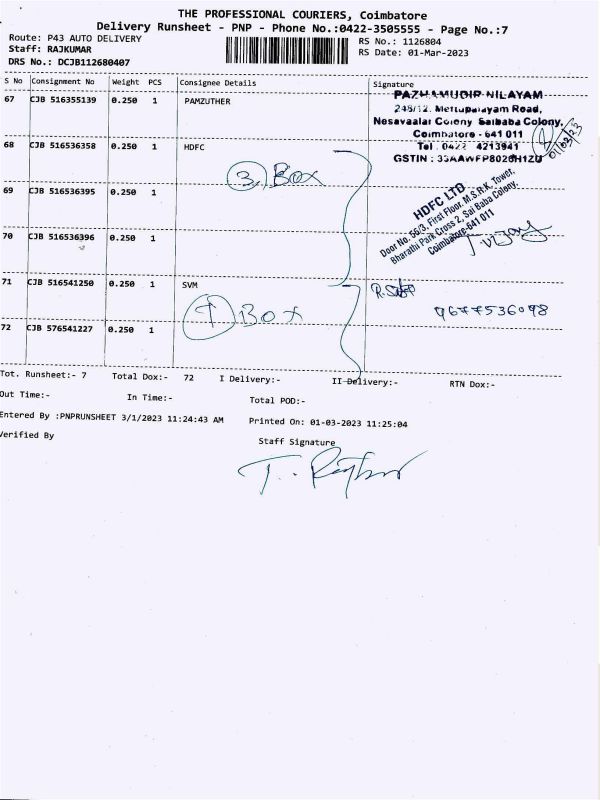 THE PROFESSIONAL COURIERS, Coimbatore
Delivery Runsheet - PNP - Phone No.:0422-3505555 - Page No.:7
Route: P43 AUTO DELIVERY
RS No.: 1126804
Staff: RAJKUMAR
RS Date: 01-Mar-2023
DRS No.: DCJB112680407
S No Consignment No Weight PCS Consignee Details Signature
67 CJB 516355139 0.250 1 PAMZUTHER
PAZHAMUDIR NILAYAM
248/12. Mettupalayam Road,
Nesavaalar Colony Saibaba Colony,
Coimbatore - 641 011
Tel : 0422 4213941
GSTIN : 33AAWFP8026H1ZU
01/03/23
68 CJB 516536358 0.250 1 HDFC
3 Box
69 CJB 516536395 0.250 1
HDFC LTD
Door No. 56/3, First Floor, M.S.R.K. Tower,
Bharathi Park Cross 2, Sai Baba Colony,
Coimbatore-641 011
Vijay
70 CJB 516536396 0.250 1
71 CJB 516541250 0.250 1 SVM
9677536098
Box
72 CJB 576541227 0.250 1
Tot. Runsheet:- 7 Total Dox:- 72 I Delivery:- II Delivery:- RTN Dox:-
Out Time:- In Time:- Total POD:-
Entered By :PNPRUNSHEET 3/1/2023 11:24:43 AM Printed On: 01-03-2023 11:25:04
Verified By Staff Signature